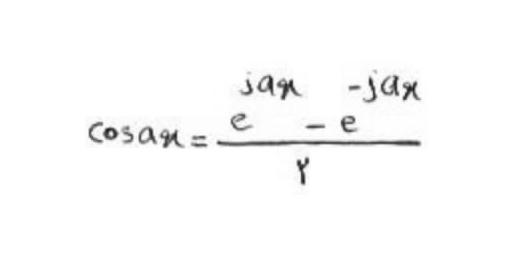 cosax = (e^{jax} - e^{-jax}) / ۲